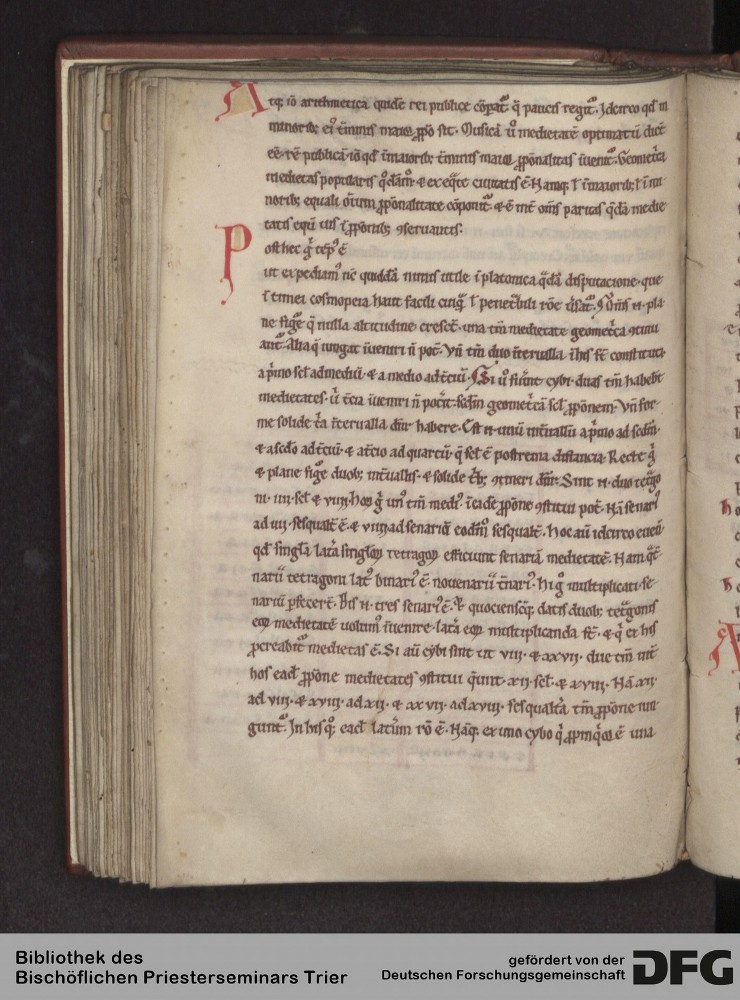 Atq; iō arithmetica quidē rei publice cōpat᷑ q̄ paucis regit᷑. Idcirco qd̄ in
minorib; ei᷒ t̄minis maior ꝓpō sit. Musicā ū medietatē optimatū dic̄t
eē rē publicā iō qd̄ ī maiorib; t̄minis maior ꝓpōnalitas īvenit᷑. Geomet̄ca
medietas popularis q̄dam̄ & exeq̄te civitatis ē. Namq; ł ī maiorib; ł ī mi
norib; equali om̄ium ꝓpōnalitate cōponit᷑. & ē int̄ om̄s paritas q̄dā medie
tatis equū ius ī ꝓpōnib; ꝯservantis.
Post hec g̊ tēp᷒ ē
ut expediam᷒ nc̄ quiddā nimis utile ī platonica q̄dā disputacione. que
ī timei cosmopeia haut facili cuiq ł penet̄bili rōe v̄sat᷑. Om̄s n̄ pla
ne fig̊e q̄ nulla altitudine cresct̄. una tm̄ medietate geomet̄ca ꝯtinu
ant᷑. Alia q̄ iungat īveniri n̄ pot̄. Vn̄ tm̄ duo īt̄ervalla ī his st̄ constituta
a p̄mo scł ad mediū. & a medio ad t̄ciū. Si ū fūint cybi. duas tm̄ habebt̄
medietates. ū t̄cia īveniri n̄ pot̄it. scd̄m geomet̄cā scł ꝓpōnem. Vn̄ for
me solide t̄a īt̄ervalla dn̄r habere. Est n̄ unū int̄vallū a p̄mo ad scd̄m.
& a scd̄o ad t̄ciū. & a t̄cio ad quartū. q̄ scł ē postrema distancia. Recte g̊
& plane fig̊e duob; int̄vallis. & solide t̄b; ꝯtineri dn̄r. Sint n̄ duo tet̄go
ni. iiii. scł & viiii. Hoꝝ g̊ un᷒ tm̄ medi᷒. ī eadē ꝓpōne ꝯstitui pot̄. Nā senari᷒
ad iiii. sesqualt̄ ē. & viiii ad senariū eodm̄ sesqualt̄. Hoc aū idcirco even̄
qd̄ singła lat̄a singłoꝝ tetragoꝝ efficiunt senariā medietatē. Nam q̄t̄
narii tetragoni lat᷒ binari᷒ ē. novenarii t̄nari᷒. Hi g̊ multiplicati se
nariū ꝑfecert̄. Bis n̄ tres senari᷒ ē. & quociensq; datis duob; tet̄gonis
eoꝝ medietatē volum᷒ īvenire. lat̄a eoꝝ multiplicanda st̄. & q̄ ex his
ꝓcreabit᷑ medietas ē. Si aū cybi sint ut viii. & xxvii. due tm̄ int̄
hos eadē ꝓpōne medietates ꝯstitui queunt. xii. scł. & xviii. Nā xii.
ad viii. & xviii. ad xii. & xxvii. ad xviii. sesqualt̄a tm̄ ꝓpōne iun
gunt᷑. In his q̊; eadē lat̄um rō ē. Nāq; ex uno cybo q̄ ꝓpinq̊or ē una
Bibliothek des
Bischöflichen Priesterseminars Trier
gefördert von der
Deutschen Forschungsgemeinschaft
DFG